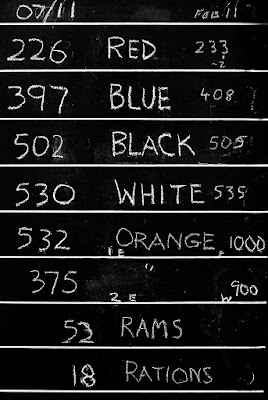 07/11 FEB 11
226 RED 233
-2
397 BLUE 408
502 BLACK 505
530 WHITE 535
532 ORANGE 1000
1 E E
375 " 900
2 E W
52 RAMS
18 RATIONS